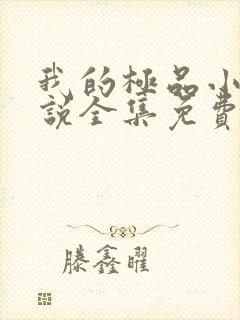 我的極品小
說全集免費
滕鑫曜